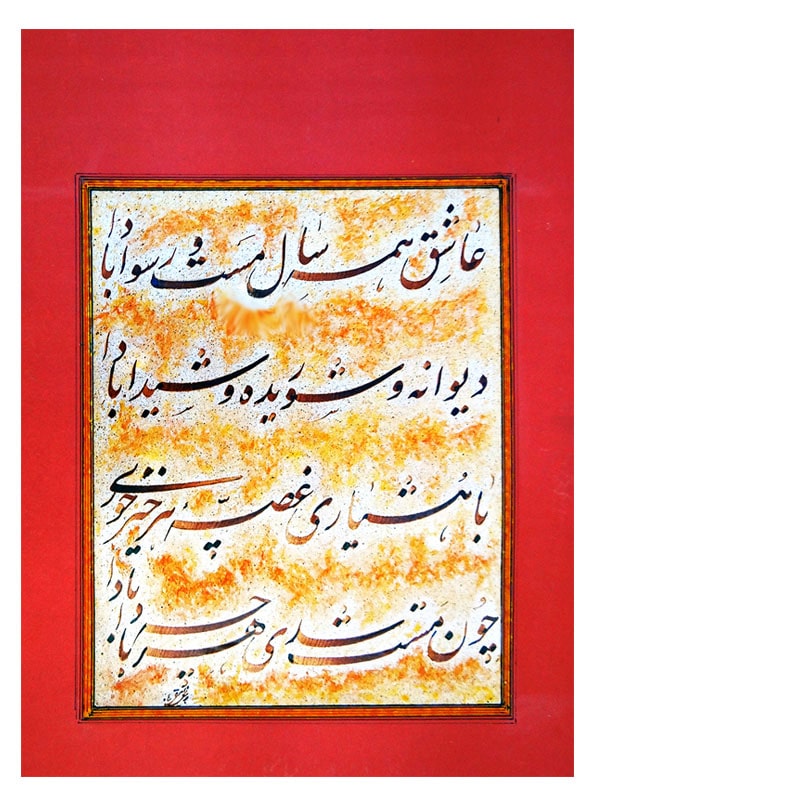 عاشق همه سال مست و رسوا بادا
دیوانه و شوریده و شیدا بادا
با هشیاری غصهٔ هر چیز خوری
چون مست شدی هر چه بادا بادا